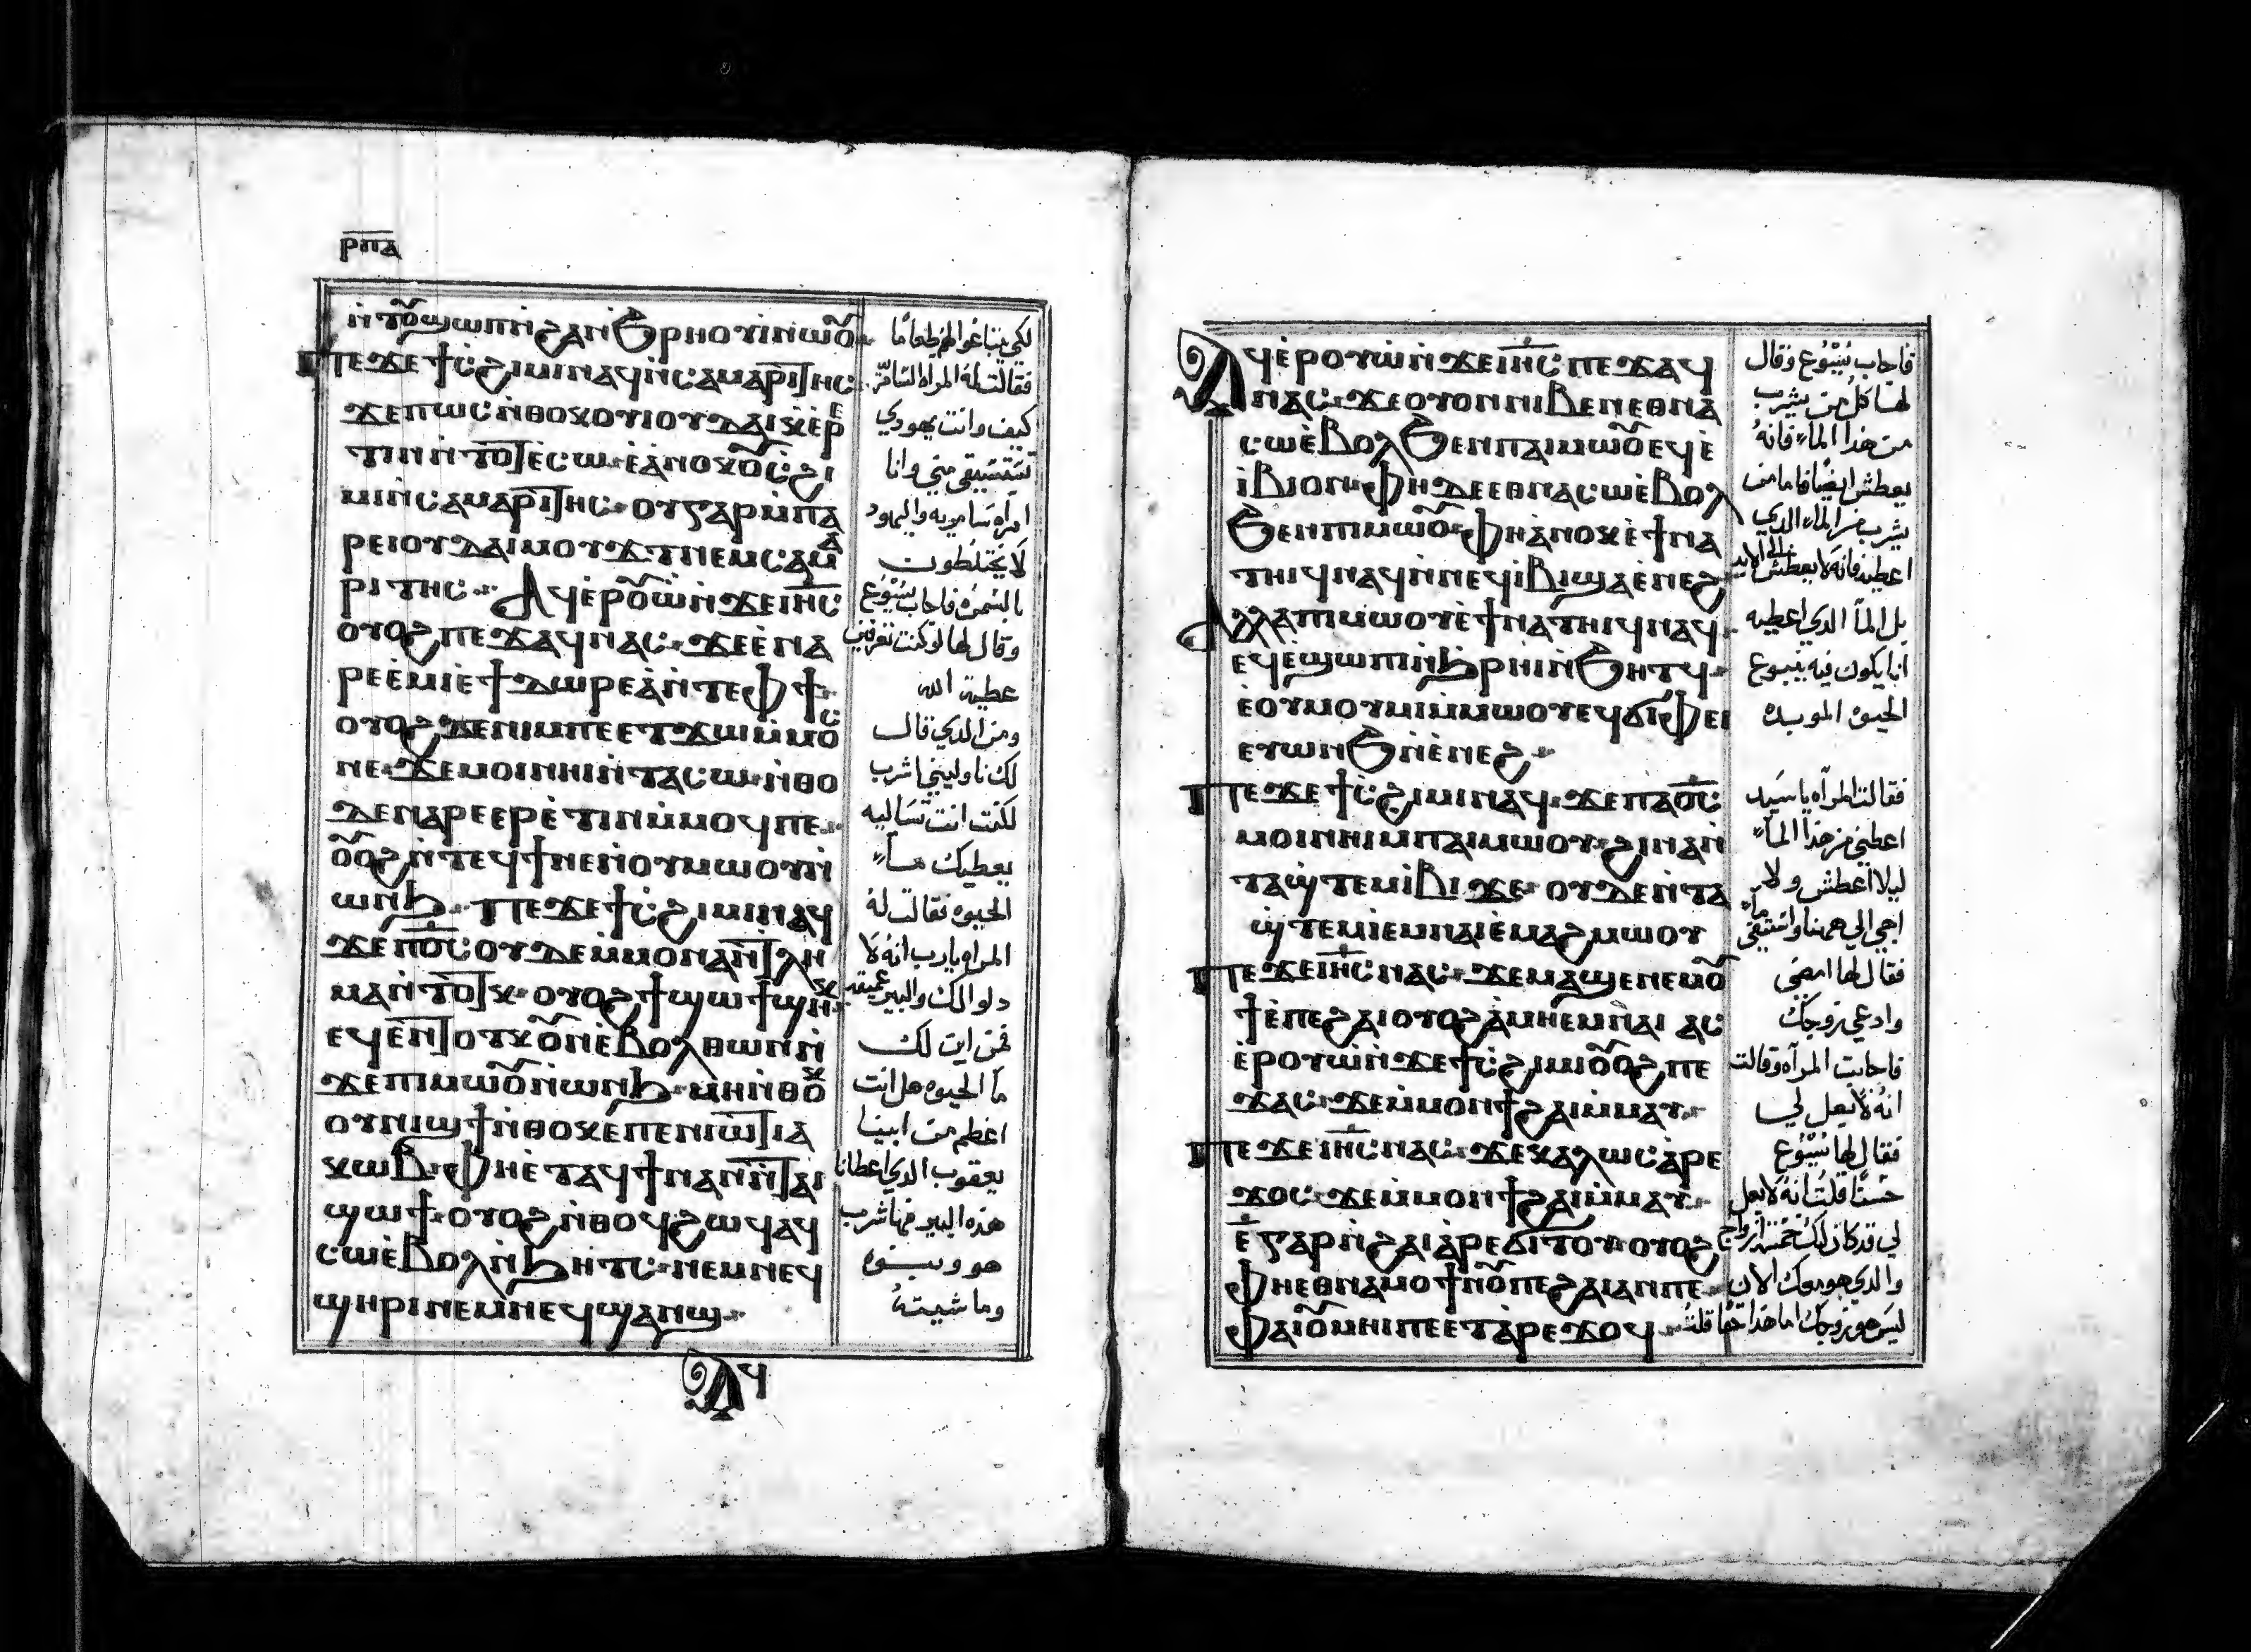 ⲣⲡⲁ
ⲛ̀ⲧⲟ̃ϣⲱⲡⲛ̀ϩⲁⲛϧⲣⲏⲟⲩⲓⲛⲱⲟ̃
ⲡⲉϫⲉϯⲥϩⲓⲙⲓⲛⲁϥⲛ̀ⲥⲁⲙⲁⲣⲓⲧⲏⲥ
ϫⲉⲡⲱⲥⲛ̀ⲑⲟⲕⲟⲩⲓⲟⲩⲇⲁⲓⲕ̀ⲉ̀ⲣⲉ
ⲧⲓⲛⲛ̀ⲧⲟⲧⲉ̀ⲥⲱ ⲉ̀ⲁⲛⲟⲕⲟ̃ⲥϩⲓ
ⲙⲓⲛ̀ⲥⲁⲙⲁⲣⲓⲧⲏⲥ ⲟⲩⲅⲁⲣⲙ̀ⲡⲁ
ⲣⲉⲓⲟⲩⲇⲁⲓⲙⲟⲩϫⲧⲛⲉⲙⲥⲁⲙⲁ
ⲣⲓⲧⲏⲥ Ⲁϥⲉ̀ⲣⲟ̃ⲱ̀ⲛ̀ϫⲉⲓⲏⲥ
ⲟⲩⲟϩⲡⲉϫⲁϥⲛⲁⲥ ϫⲉⲉ̀ⲛⲁ
ⲣⲉⲉ̀ⲙⲓⲉ̀ϯⲇⲱⲣⲉⲁ̀ⲛ̀ⲧⲉⲫϯ
ⲟⲩⲟϩϫⲉⲛⲓⲙⲡⲉⲉⲧϫⲱⲙ̀ⲙⲟⲥ
ⲛⲉ ϫⲉⲙⲟⲓⲛⲏⲓⲛ̀ⲧⲁⲥⲱ ⲛ̀ⲑⲟ
ⲇⲉⲛⲁⲣⲉⲉⲣⲉ̀ⲧⲓⲛⲙ̀ⲙⲟϥⲡⲉ
ⲟ̃ⲟϩⲛ̀ⲧⲉϥϯⲛⲉⲛ̀ⲟⲩⲙⲱⲟⲩⲛ̀
ⲱⲛϧ Ⲡⲉϫⲉϯⲥϩⲓⲙⲓⲛⲁϥ
ϫⲉⲡⲟ̅ⲥ̅ⲟⲩⲇⲉⲙ̀ⲙⲟⲛⲁⲛⲧⲗⲏ
ⲙⲁⲛ̀ⲧⲟⲧⲕ ⲟⲩⲟϩϯϣⲱϯϣⲏⲕ
ⲉϥⲉ̀ⲛⲧⲟⲩⲕⲟ̃ⲛⲉ̀ⲃⲟⲗⲑⲱⲛⲛ̀
ϫⲉⲡⲓⲙⲱⲟ̃ⲛ̀ⲱⲛϧ ⲙⲏⲛ̀ⲑⲟⲕ
ⲟⲩⲛⲓϣϯⲛ̀ⲑⲟⲕⲉ̀ⲡⲉⲛⲓⲱⲧⲓⲁ
ⲕⲱⲃ ⲫⲏⲉ̀ⲧⲁϥϯⲛⲁⲛⲛ̀ⲧⲁⲓ
ϣⲱϯ ⲟⲩⲟϩⲛ̀ⲑⲟϥϩⲱϥⲁϥ
ⲥⲱⲉ̀ⲃⲟⲗⲛ̀ϧⲏⲧⲥ ⲛⲉⲙⲛⲉϥ
ϣⲏⲣⲓⲛⲉⲙⲛⲉϥϣⲁⲛϣ
Ⲁϥ
لكي يبتاعوا لهم طعاما
فقالت له المراه السامريه
كيف وانت يهودي
تستسقي مني وانا
امراه سامريه واليهود
لا يختلطون
بالسمره فاجاب يسوع
وقال لها لو كنت تعرفين
عطية الله
ومن الذي قال
لك ناوليني اشرب
لكنت انت تساليه
يعطيك ماء
الحيوه فقالت له
المراه يارب انه لا
دلو لك والبير عميقه
فمن اين لك
ما الحيوه هل انت
اعظم من ابينا
يعقوب الدي اعطانا
هذه البير منها شرب
هو وبنوه
وماشيته
Ⲁϥⲉ̀ⲣⲟⲩⲱ̀ⲛ̀ϫⲉⲓⲏⲥⲡⲉϫⲁϥ
ⲛⲁⲥ ϫⲉⲟⲩⲟⲛⲛⲓⲃⲉⲛⲉⲑⲛⲁ
ⲥⲱⲉ̀ⲃⲟⲗϧⲉⲛⲡⲁⲓⲙⲱⲟ̃ⲉϥⲉ̀
ⲓ̀ⲃⲓⲟⲛ ⲫⲏⲇⲉⲉⲑⲛⲁⲥⲱⲉ̀ⲃⲟⲗ
ϧⲉⲛⲡⲓⲙⲱⲟ̃ ⲫⲏⲁⲛⲟⲕⲉ̀ϯⲛⲁ
ⲧⲏⲓϥⲛⲁϥⲛ̀ⲛⲉϥⲓ̀ⲃⲓϣⲁⲉ̀ⲛⲉϩ
Ⲁⲗⲗⲁⲡⲓⲙⲱⲟⲩⲉ̀ϯⲛⲁⲧⲏⲓϥⲛⲁϥ
ⲉϥⲉ̀ϣⲱⲡⲓⲛ̀ϧⲣⲏⲓⲛ̀ϧⲏⲧϥ
ⲉ̀ⲟⲩⲙⲟⲩⲙⲓⲙ̀ⲙⲱⲟⲩⲉϥϭⲓⲫⲉⲓ
ⲉⲩⲱⲛϧⲛ̀ⲉ̀ⲛⲉϩ
Ⲡⲉϫⲉϯⲥϩⲓⲙⲓⲛⲁϥ ϫⲉⲡⲁⲟ̅ⲥ̅
ⲙⲟⲓⲛⲏⲓⲙⲡⲁⲓⲙⲱⲟⲩ ϩⲓⲛⲁⲛ̀
ⲧⲁϣ̀ⲧⲉⲙⲓ̀ⲃⲓ ϫⲉ ⲟⲩⲇⲉⲛ̀ⲧⲁ
ϣ̀ⲧⲉⲙⲓⲉⲙⲛⲁⲓⲉ̀ⲙⲁϩⲙⲱⲟⲩ
Ⲡⲉϫⲉⲓⲏⲥⲛⲁⲥ ϫⲉⲙⲁϣⲉⲛⲉⲙⲟ̃
ϯⲉ̀ⲡⲉϩⲁⲓⲟⲩⲟϩⲁ̀ⲙⲏⲉⲙⲛⲁⲓ ⲁⲥ
ⲉ̀ⲣⲟⲩⲱ̀ⲛ̀ϫⲉϯⲥϩⲓⲙⲓⲟ̃ⲟϩⲡⲉ
ϫⲁⲥ ϫⲉⲙ̀ⲙⲟⲛϯϩⲁⲓⲙ̀ⲙⲁⲩ
Ⲡⲉϫⲉⲓⲏⲥⲛⲁⲥ ϫⲉⲕⲁⲗⲱⲥⲁ̀ⲣⲉ
ϫⲟⲥ ϫⲉⲙ̀ⲙⲟⲛϯϩⲁⲓⲙ̀ⲙⲁⲩ
ⲉ̅ⲅⲁⲣⲛ̀ϩⲁⲓⲁ̀ⲣⲉϭⲓⲧⲟⲩ ⲟⲩⲟϩ
ⲫⲏⲉⲑⲛⲁⲙⲟϯⲛⲟ̃ⲡⲉϩⲁⲓⲁⲛⲡⲉ
ⲫⲁⲓⲟ̃ⲙⲏⲓⲡⲉⲉⲧⲁ̀ⲣⲉϫⲟϥ
فاجاب يسوع وقال
لها كل من يشرب
من هذا الماء فانه
يعطش ايضا فاما من
يشرب من الماء الدي
اعطيه فانه لا يعطش الي الابد
بل الماء الدي اعطيه
انا يكون فيه ينبوع
الحيوه الموبده
فقالت المراه يا سيد
اعطني من هذا الماء
ليلا اعطش ولا
اجي الي ههنا واستقي ماء
فقال لها امضي
وادعي زوجك
فاجابت المراه وقالت
انه لا بعل لي
فقال لها يسوع
حسنا قلت انه لا بعل
لي قد كان لك خمسة ازواج
والدي هو معك الان
ليس هو زوجك اما هذا حقا قلت